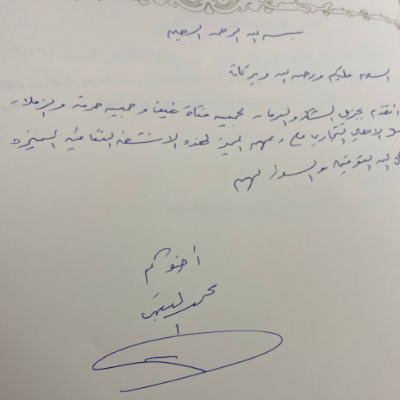 بسم الله الرحمن الرحيم
السلام عليكم ورحمة الله وبركاته
اتقدم بجزيل الشكر والعرفان لجمعية فتاة عفيف و جمعية حرفة والزملاء
الاهلي التجاري على دعمهم المميز لهذه الانشطة الثقافية المميزة
الله التوفيق والسداد لهم
اخوكم
محمد